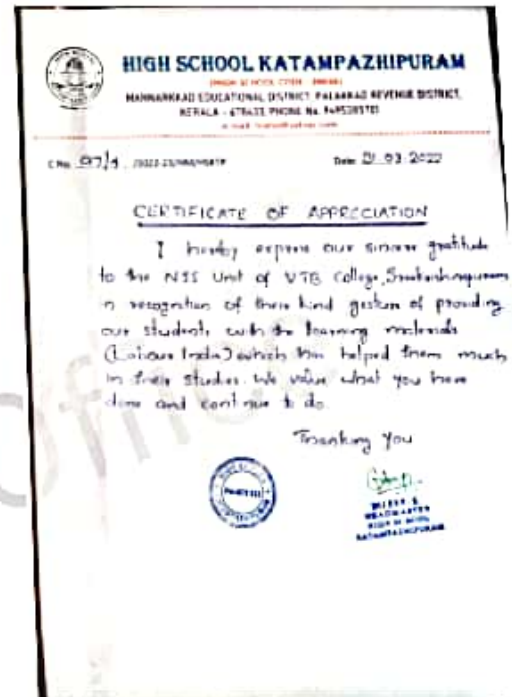 HIGH SCHOOL KATAMPAZHIPURAM
MANNARKKAD EDUCATIONAL DISTRICT, PALAKKAD REVENUE DISTRICT,
KERALA - 678633, PHONE No.
Date 21.03.2022
CERTIFICATE OF APPRECIATION
I hereby express our sincere gratitude
to the NSS Unit of VTB College, Sreekrishnapuram
in recognition of their kind gesture of providing
our students with the learning materials
(Labour India) which has helped them much
in their studies. We value what you have
done and continue to do.
Thanking You
HEADMASTER
HIGH SCHOOL
KATAMPAZHIPURAM
office